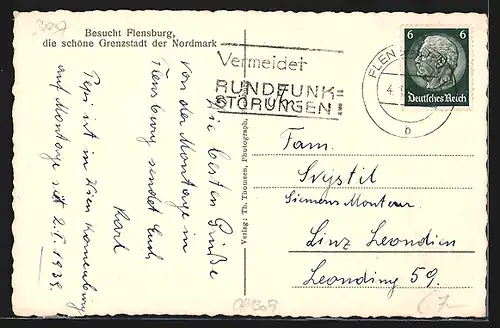 Besucht Flensburg,
die schöne Grenzstadt der Nordmark
Vermeidet
RUNDFUNK=
STÖRUNGEN!
FLENS
4.
b
6 6
Deutsches Reich
Die besten Grüße
von der Montage in
Flensburg sendet Euch
Karl
Pepi ist in Wien
auf Montage seit 2.I.1939.
Verlag: Th. Thomsen, Photograph,
Fam.
Svystil
Siemens Monteur
Linz Leondien
Leonding 59.
7-